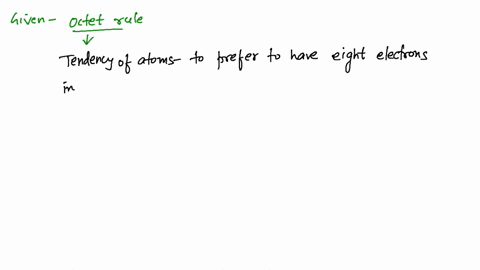 Given- octet rule
Tendency of atoms- to prefer to have eight electrons
in